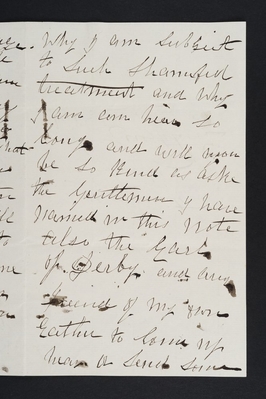 Why I am Subject
to Such Shamful
treatment and Why
I am am hear So
Long and will you
be So Kind as aske
the Gentlemen I have
named in this Note
also the Earl
of Derby and any
friend of my own
Eather to Come up
hear or Send Some